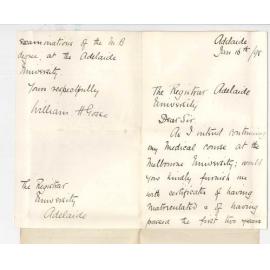 Adelaide
Jan 16th /98
The Registrar Adelaide
University
Dear Sir.
As I intend continuing
my Medical course at the
Melbourne University; would
you kindly furnish me
with certificates of having
matriculated & of having
passed the first two years
examinations of the M B
degree, at the Adelaide
University
Yours respectfully
William H Gosse
The Registrar
University
Adelaide